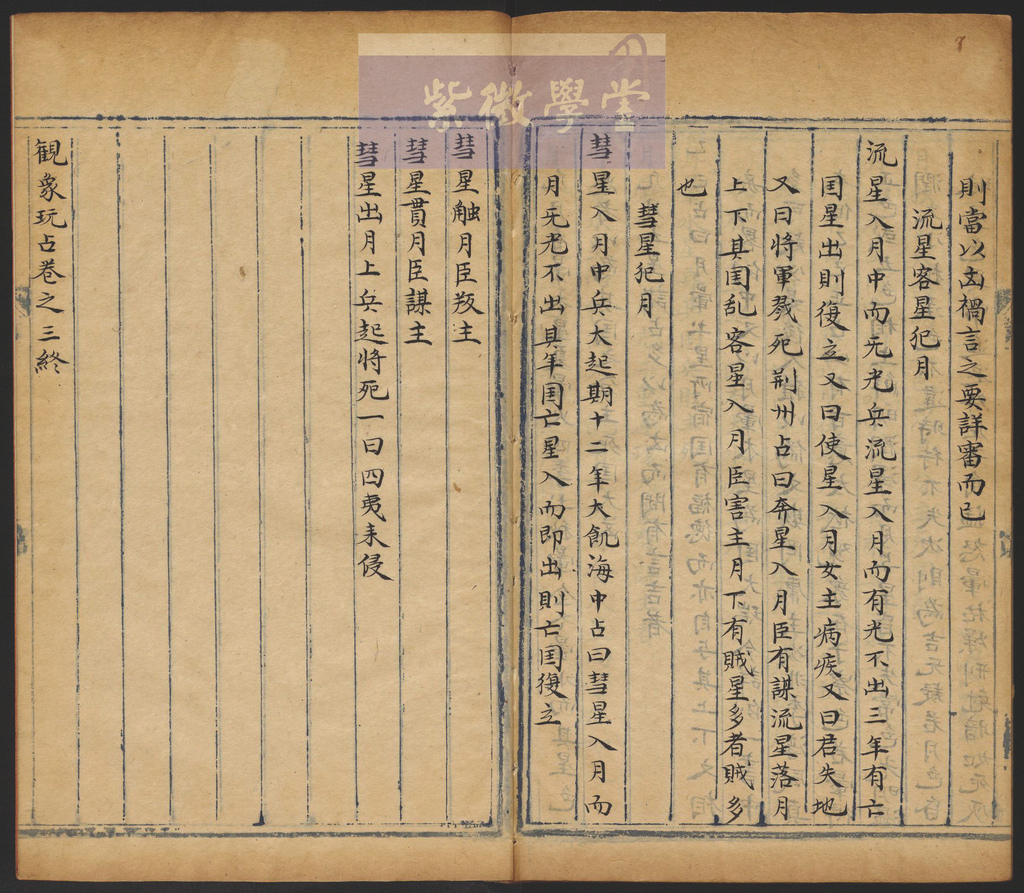 紫微學堂
則當以凶禍言之要詳審而已
流星客星犯月
流星入月中而无光兵流星入月而有光不出三年有亡
囯星出則復立又曰使星入月女主病疾又曰君失地
又曰将軍戮死荆州占曰奔星入月臣有謀流星落月
上下其囯乱客星入月臣害主月下有賊星多者賊多
也
彗星犯月
彗星入月中兵大起期十二年大飢海中占曰彗星入月而
月无光不出其年囯亡星入而即出則亡囯復立
彗星触月臣叛主
彗星貫月臣謀主
彗星出月上兵起将死一曰四夷来侵
観象玩占卷之三終